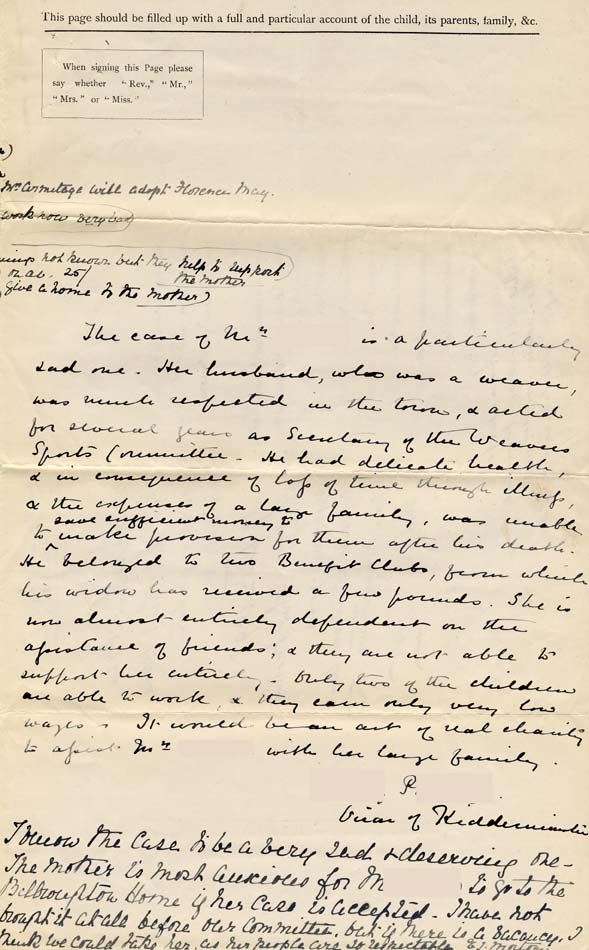 This page should be filled up with a full and particular account of the child, its parents, family, &c.
When signing this Page please
say whether "Rev.," "Mr.,"
"Mrs." or "Miss."
Mrs Armitage will adopt Florence May.
work now very bad
not known but they help to support
the mother
25/
give a home to the mother)
The case of Mrs is a particularly
sad one. Her husband, who was a weaver,
was much respected in the town, & acted
for several years as Secretary of the Weavers
Sports Committee. He had delicate health,
& in consequence of loss of time through illness,
& the expenses of a large family, was unable
save sufficient money to
to make provision for them after his death.
He belonged to two Benefit Clubs, from which
his widow has received a few pounds. She is
now almost entirely dependent on the
assistance of friends; & they are not able to
support her entirely. Only two of the children
are able to work, & they earn only very low
wages. It would be an act of real charity
to assist Mrs with her large family.
P.
Vicar of Kidderminster
I know the case to be a very sad & deserving one -
The mother is most anxious for M to go to the
Home if her case is accepted - I have not
brought it at all before our Committee, but if there is a vacancy, I
think we could take her, as her people are so respectable & Mother